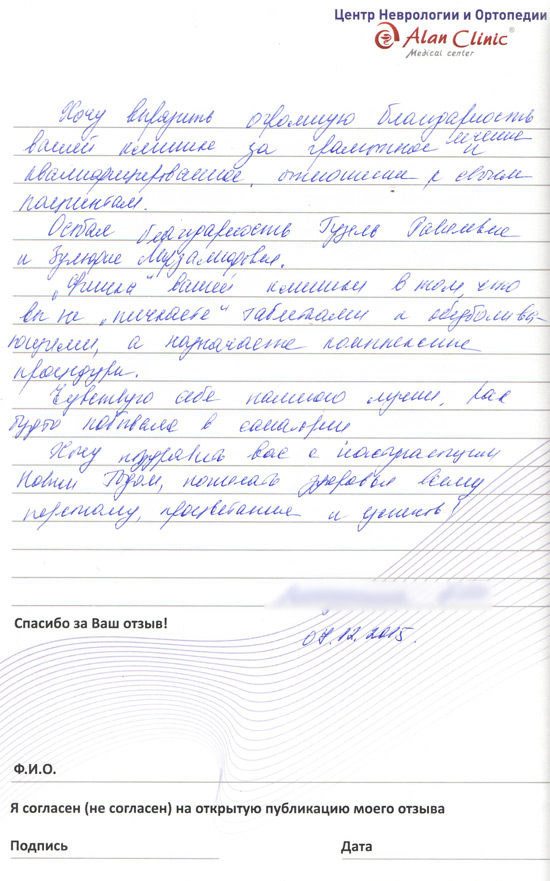 Центр Неврологии и Ортопедии
Alan Clinic®
Medical center
Хочу выразить огромную благодарность
вашей клинике за грамотное лечение и
квалифицированное отношение к своим
пациентам.
Особая благодарность Гузель Равилевне
и Зульфие
„Фишка" вашей клиники в том, что
вы не „пичкаете" таблетками и обезболива-
ющими, а назначаете комплексные
процедуры.
Чувствую себя намного лучше, как
будто побывала в санатории
Хочу поздравить вас с наступающим
Новым Годом, пожелать здоровья всему
персоналу, процветания и успехов!
Спасибо за Ваш отзыв!
07.12.2015.
Ф.И.О.
Я согласен (не согласен) на открытую публикацию моего отзыва
Подпись Дата